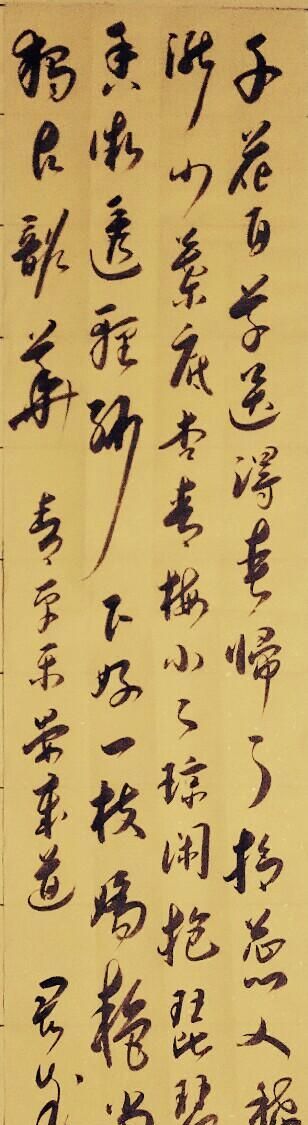 千花百草送得春歸了拾蕊人稀
漸少葉底杏青梅小〻瓊閑抱琵琶
香微透輕紗正好一枝嬌艷當
獨占韶華 清平樂 晏幾道